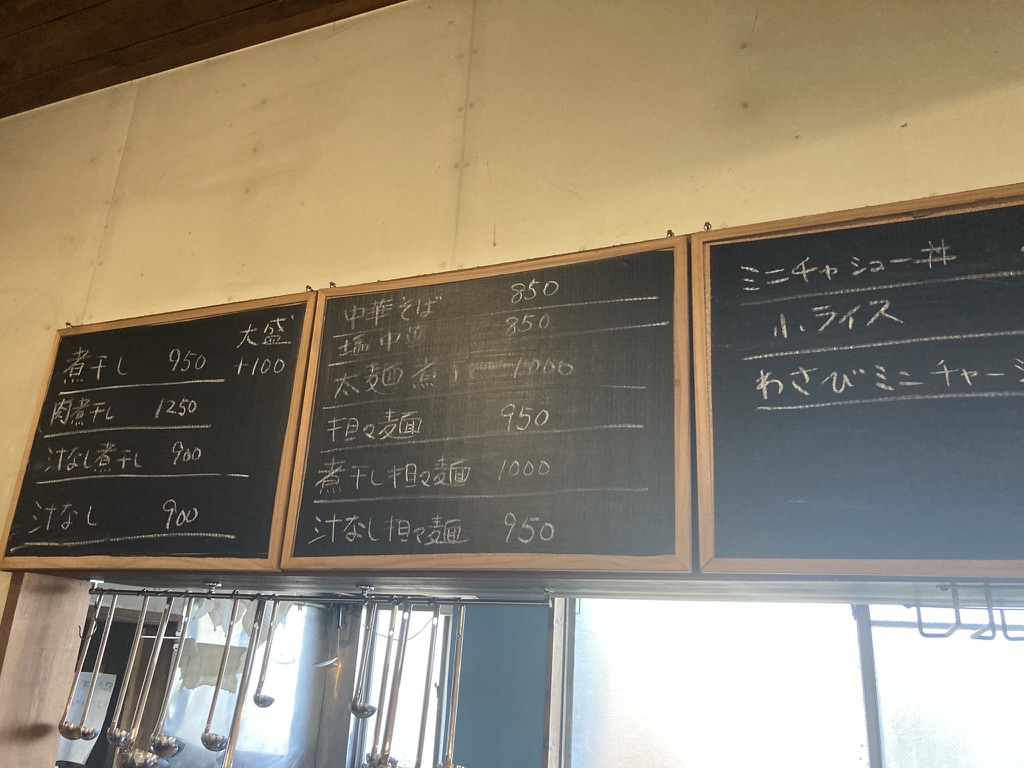 大盛
煮干し 950 +100
肉煮干し 1250
汁なし煮干し 900
汁なし 900
中華そば 850
塩中華 850
太麺煮干 1000
担々麺 950
煮干し担々麺 1000
汁なし担々麺 950
ミニチャシュー丼
小ライス
わさびミニチャー